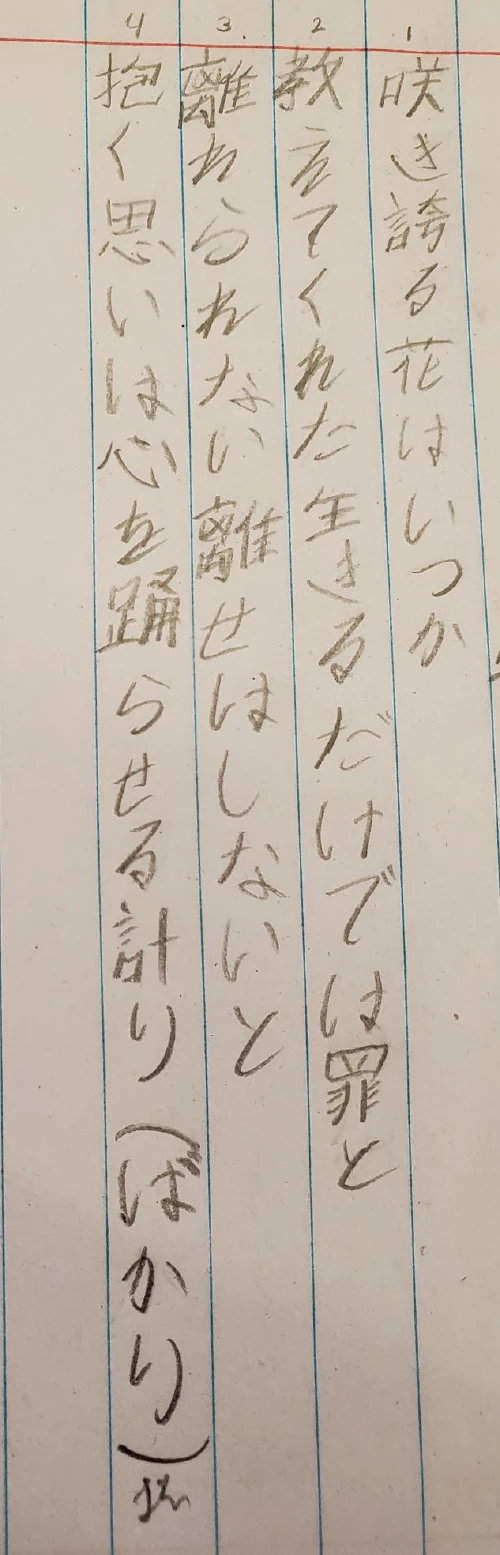 1
咲き誇る花はいつか
2
教立てくれた生きるだけでは罪と
3.
離れられない離せはしないと
4
抱く思いは心を踊らせる計り(ばかり)